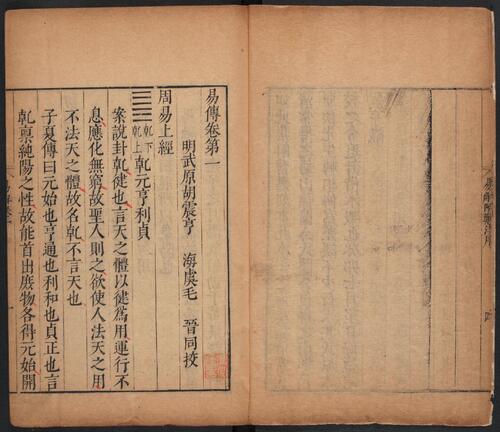 易傳卷第一
明武原胡震亨 海虞毛 晉同挍
周易上經
乾下乾上 乾元亨利貞
案說卦乾健也言天之體以健爲用運行不
息應化無窮故聖人則之欲使人法天之用
不法天之體故名乾不言天也
子夏傳曰元始也亨通也利和也貞正也言
乾稟純陽之性故能首出庶物各得元始開